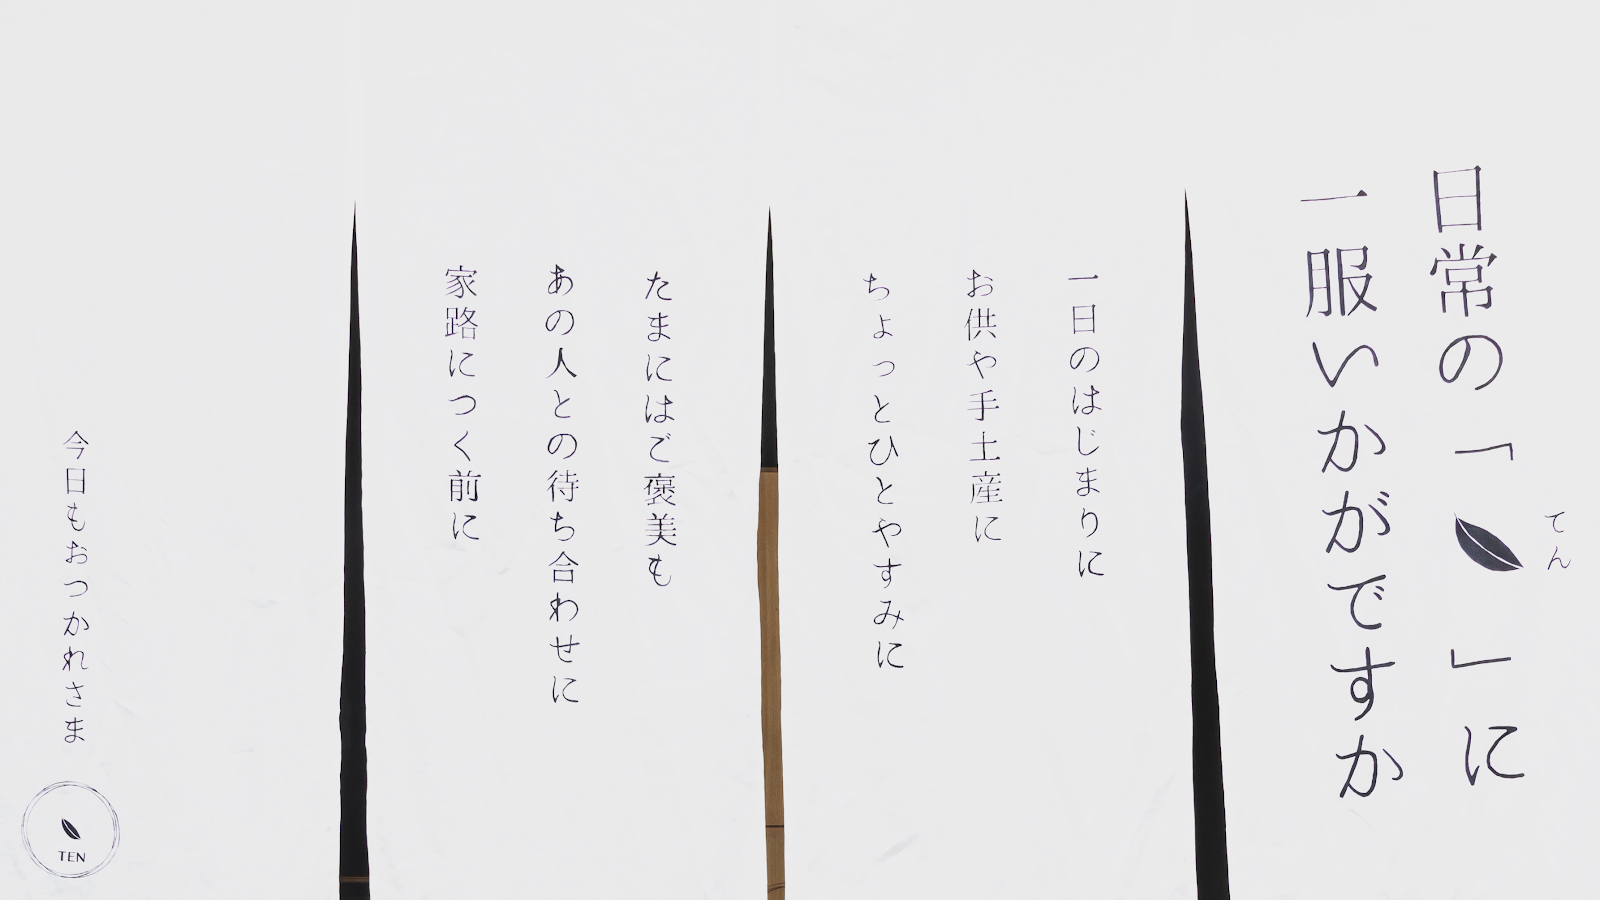 日常の「 」に
てん
一服いかがですか
一日のはじまりに
お供や手土産に
ちょっとひとやすみに
たまにはご褒美も
あの人との待ち合わせに
家路につく前に
今日もおつかれさま
TEN